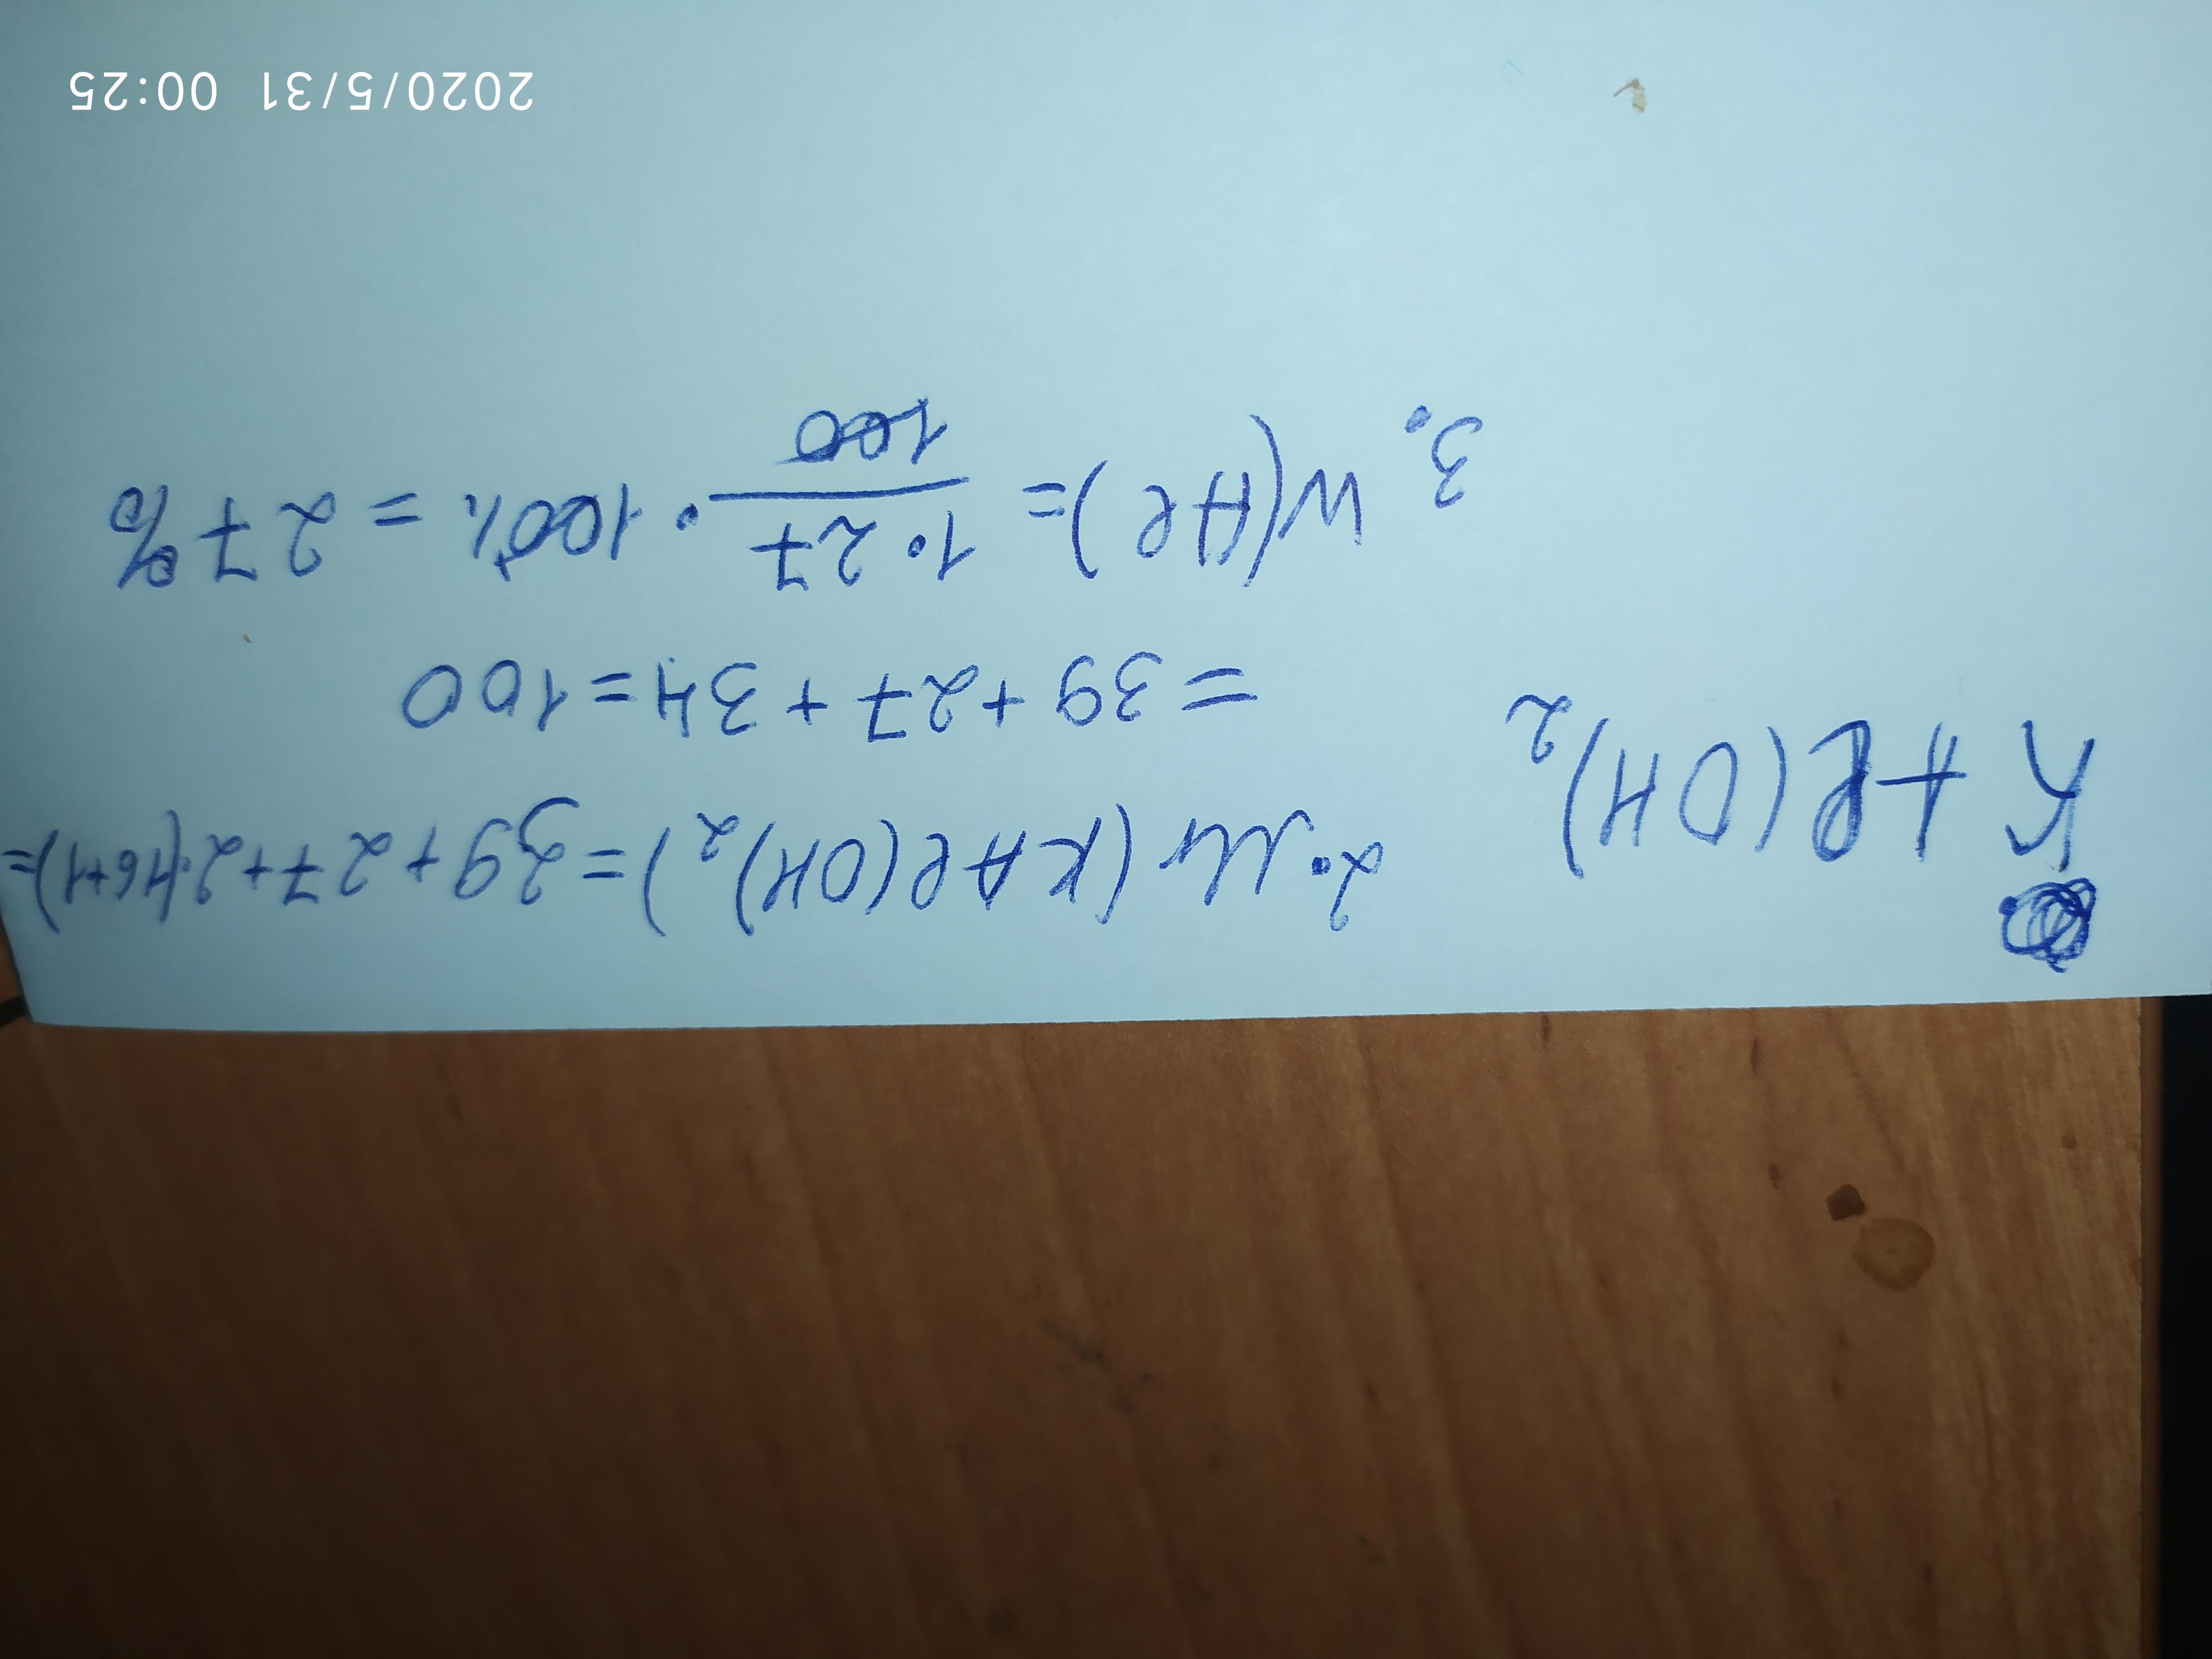 KAl(OH)₂
2. Mr(KAl(OH)₂) = 39 + 27 + 2·(16+1) =
= 39 + 27 + 34 = 100
3. W(Al) = 1·27/100 · 100% = 27%
2020/5/31 00:25